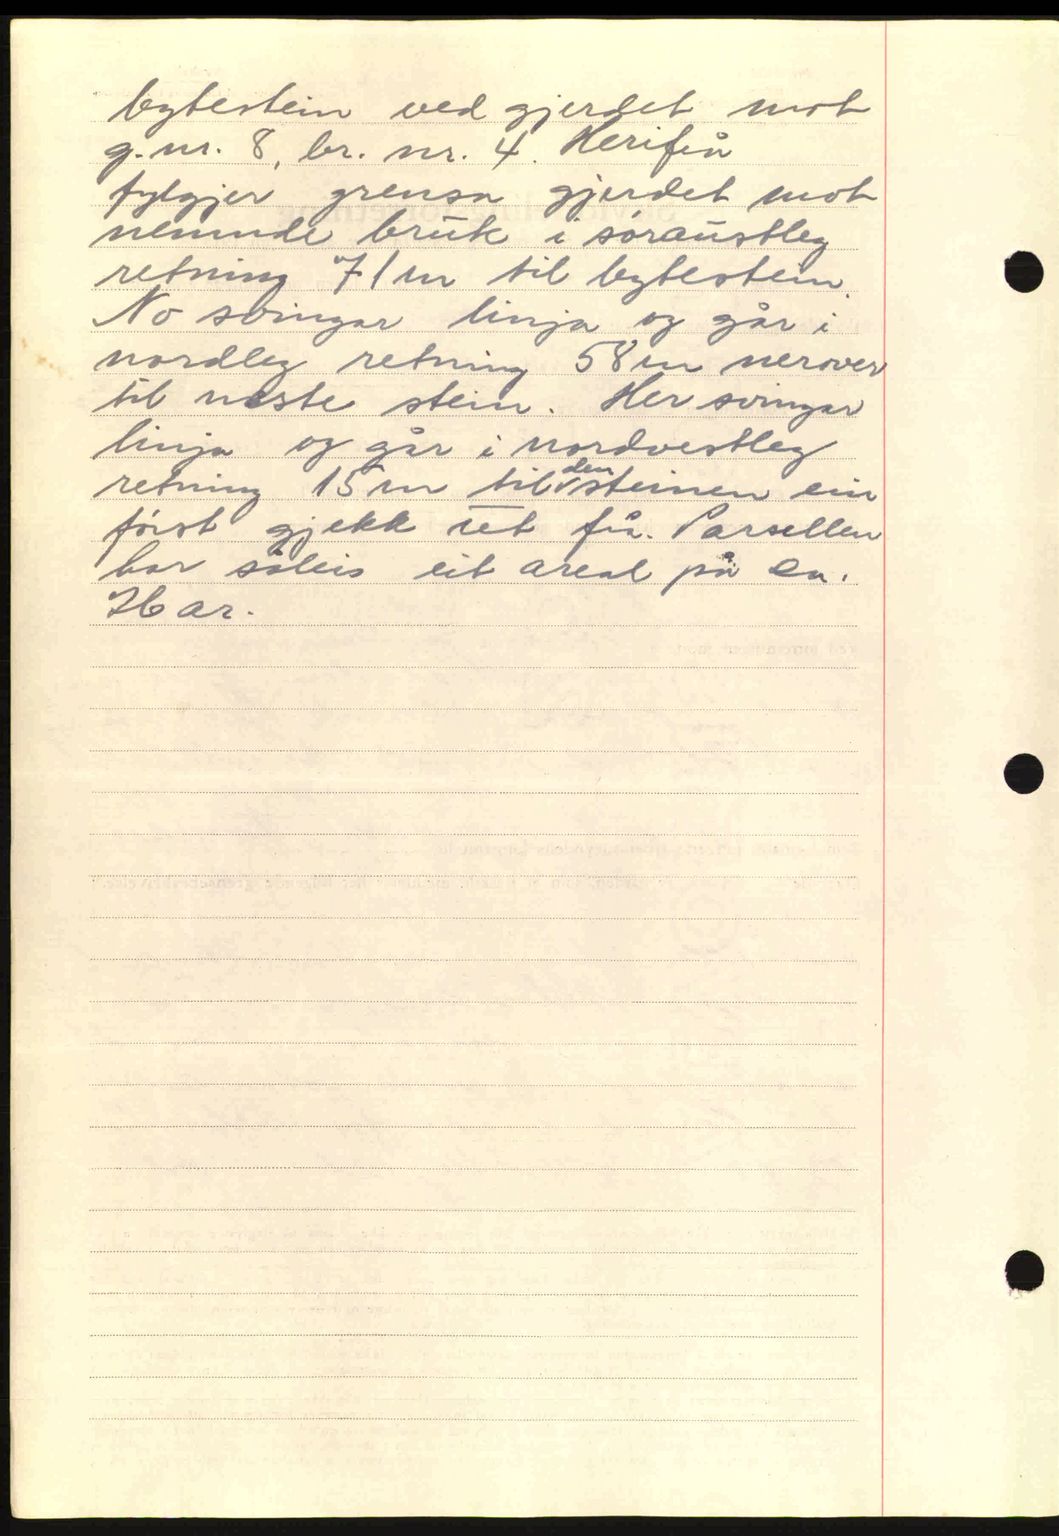 bytestein ved gjerdet mot
g.nr. 8, br. nr. 4. Herifrå
fylgjer grensa gjerdet mot
nemnde bruk i søraustleg
retning 71 m til bytestein.
No svingar linja og går i
nordleg retning 58 m nerover
til næste stein. Her svingar
linja og går i nordvestleg
retning 15 m til den steinen ein
først gjekk ut frå. Parsellen
har såleis eit areal på ca.
ar.